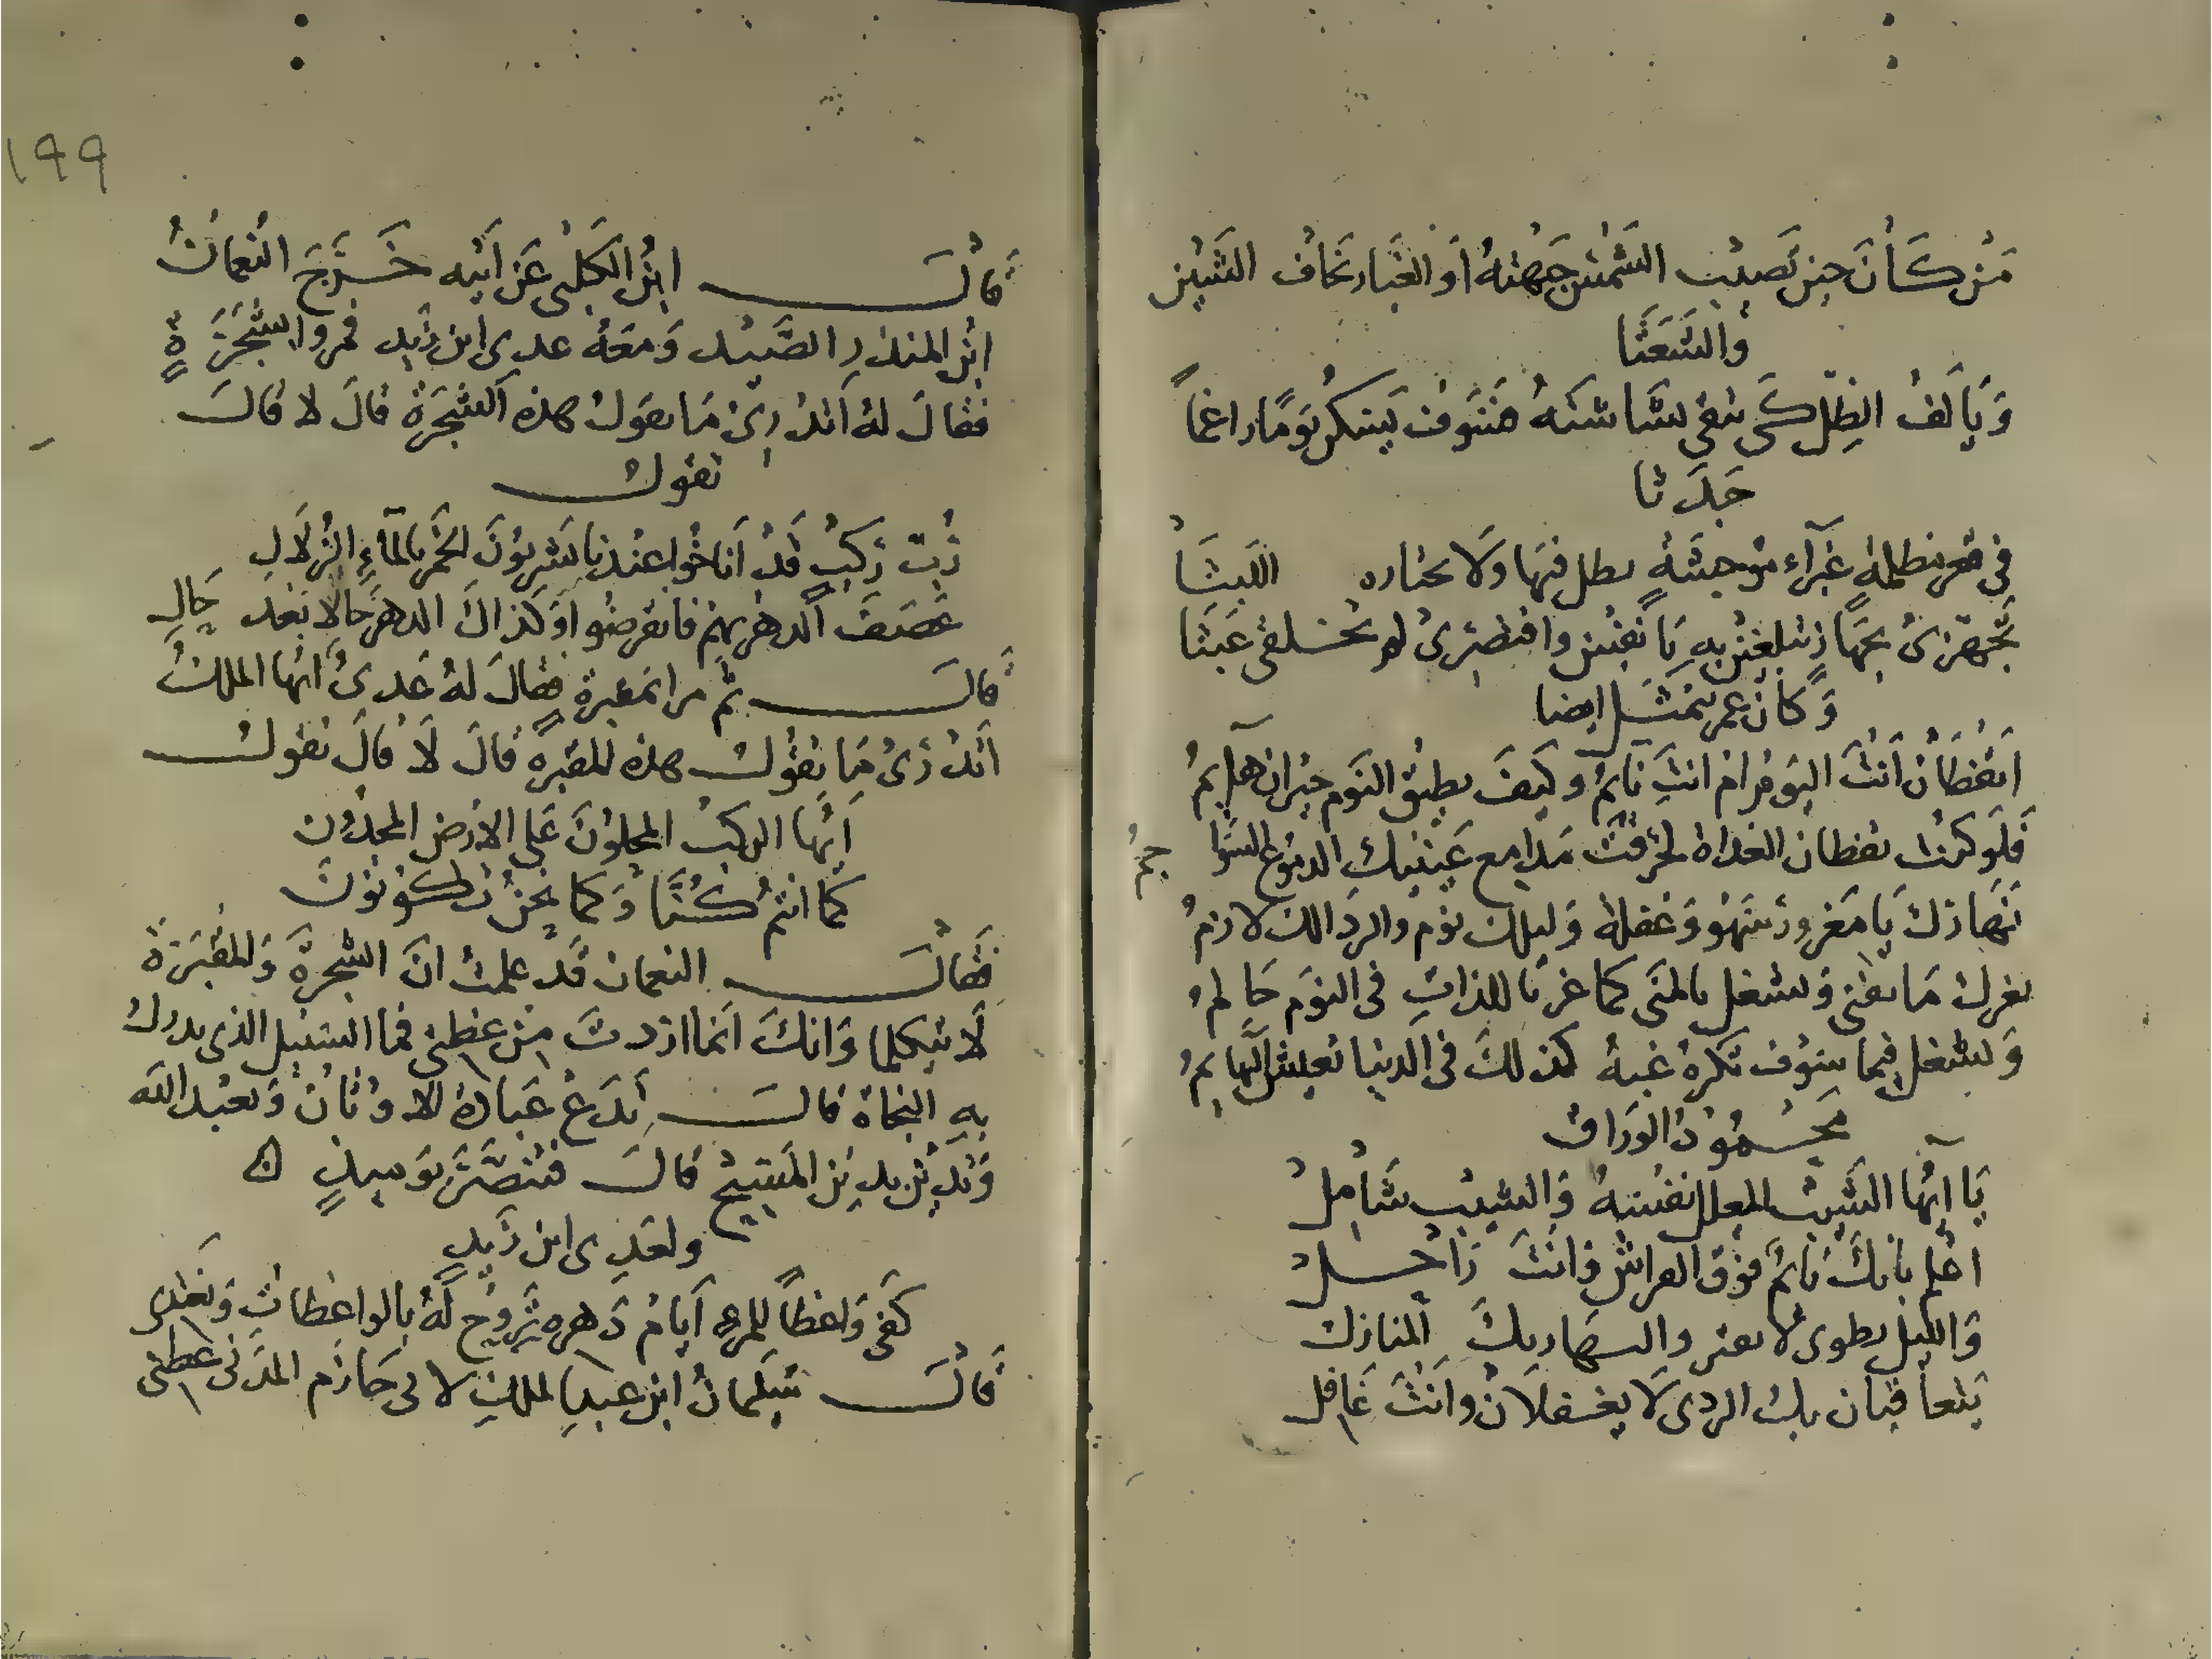 مَن كَأنَ حين تَصيب الشَمسَ جَبهتهُ أو الغبَار يَخاف الشَين
والشَعَثا
وَيَألفُ الظِل كَي تبقى بشَاشتهُ فسَوف يَسكن يَومًا راغماً
جَدَثا
في قعر مظلمةٍ غَبرآء موحشَةٍ يطيل فيهَا ولا يختاره اللَبثَا
تَجَهّزى بجهَازٍ تبلغين بهِ يَا نَفسُ واقتصِرى لم تخلقى عَبَثا
وَكانَ عمر يتمثَل ايضا
ايَقظَانُ أنتَ اليَوم ام انتَ نَايمُ وكَيفَ يطيق النَوم حيران هَايمُ
فَلَو كنت يقظان الغداة لحرَقتَ مَدامع عَينيك الدموع السَوا جمُ
نَهَارك يَا مَغرور سَهو وَغفلةٌ وَليلك نوم والردَا لك لازمُ
يغرك مَا يفنى وَتشغل بالمنَى كما غر بَا للذاتِ فى النوَم حَالمُ
وَتشغل فيما سَوف تكرهُ غبهُ كذلكَ فى الدنيا تعيش البَهايمُ
محمود الوَراق
يَا اَيُّها الشَيب المعلل نفسَهُ وَالشيب شَاملُ
اعلم بانكَ نَايمٌ فوَق الفراش وَانتَ رَاحلُ
وَالليل يطوى لا يفتر والنهار بكَ المنازل
يَتعاقبَان بك الردى لا يغفلان وانتَ غَافل
١٩٩
قالَ ابنُ الكَلبى عَن اَبيه خَرَجَ النعمانُ
ابنُ المنذر الصَيد وَمَعَهُ عدى ابن زَيد فمروا بشجَرَةٍ
فقالَ لهُ أتدرى مَا تقول هذه الشجَرة قالَ لا قالَ
تقول
رُبّ رَكبٍ قَد اَناخُوا عندنا يشربونَ الخَمر بالمآءِ الزلَالِ
عَصَفَ الدهر بهم فانقرضُوا وَكَذاكَ الدهر حَالا بَعد حَالِ
قالَ ثم مرا بمقبرة فقالَ لهُ عَدىُّ اَيهَا الملكُ
اَتدرى مَا تقول هذه المقبرة قالَ لَا قالَ تقول
اَيُّها الركبُ المخبونَ عَلى الارض المجدون
كما انتمُ كُنَّا وَكما نحن تكونونَ
فقالَ النعمان قَد علمتُ انَ الشجرةَ وَالمقبَرَة
لَا يتكلما وَانكَ انما اردتَ مِن عظتى فما السَبيل الذى يدرك
به النجاة قالَ تَدَع عبَادة الاوثان وَتعبُد الله
وَتَدين بدين المَسيح قالَ فتنَصَّرَ يَوميذٍ
ولعَدِى ابن زَيدٍ
كَفى وَاعظاً للمرءِ اَيامُ دَهره تَروح لهُ بالواعظات وَتغتدى
قالَ سليمانُ ابن عبد الملكِ لابى حَازم المَدَنى عظنى